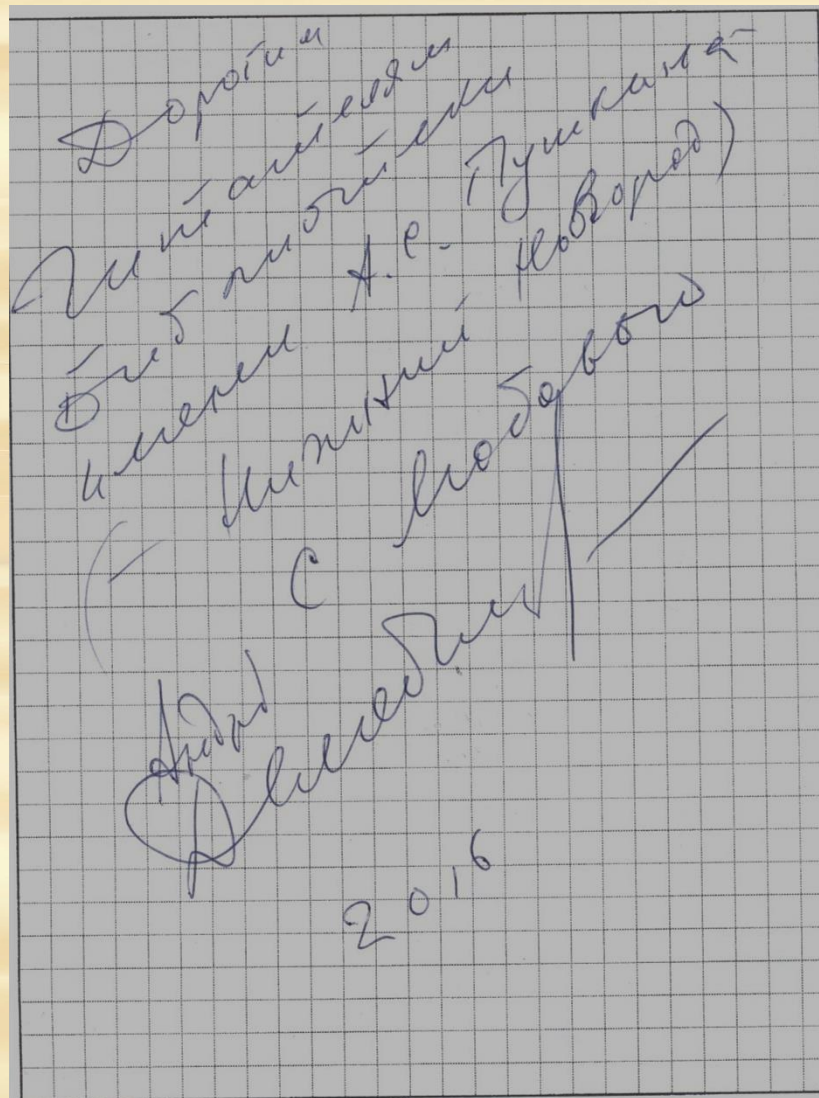 Дорогим
читателям
библиотеки
имени А.С. Пушкина
(– Нижний Новгород)
с любовью
Андрей
Дементьев
2016